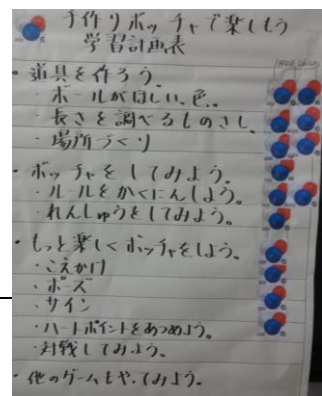 手作りボッチャで楽しもう
学習計画表
・道具を作ろう。
・ボールがほしい、色。
・長さを調べるものさし、
・場所づくり
・ボッチャをしてみよう。
・ルールをかくにんしよう。
・れんしゅうをしてみよう。
・もっと楽しくボッチャをしよう。
・こえかけ
・ポーズ
・サイン
・ハートポイントをあつめよう。
・対戦してみよう。
・他のゲームもやってみよう。